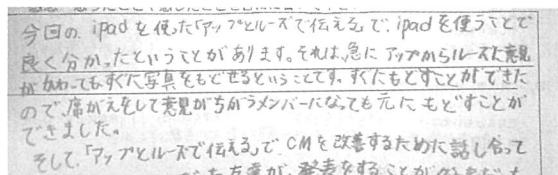 今回の ipadを使った「アップとルーズで伝える」で、ipadを使うことで
良く分かったということがあります。それは、急に アップからルーズに意見
がかわってもすぐに写真をもどせるということです。すぐにもどすことができた
ので、席がえをして意見がちがうメンバーになっても元に もどすことが
できました。
そして、「アップとルーズで伝える」で、CMを改善するために話し合って
友達が、発表をすることが